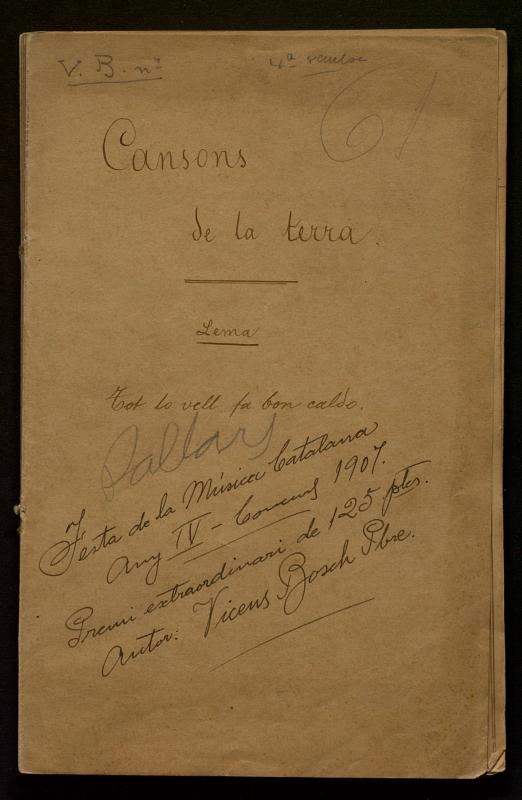 V. B. nº
4ª
61
Cansons
de la terra.
Lema
Tot lo vell fa bon caldo.
Pallars
Festa de la Música Catalana
Any IV - Concurs 1907.
Premi extraordinari de 125 ptes.
Autor: Vicens Bosch Pbre.